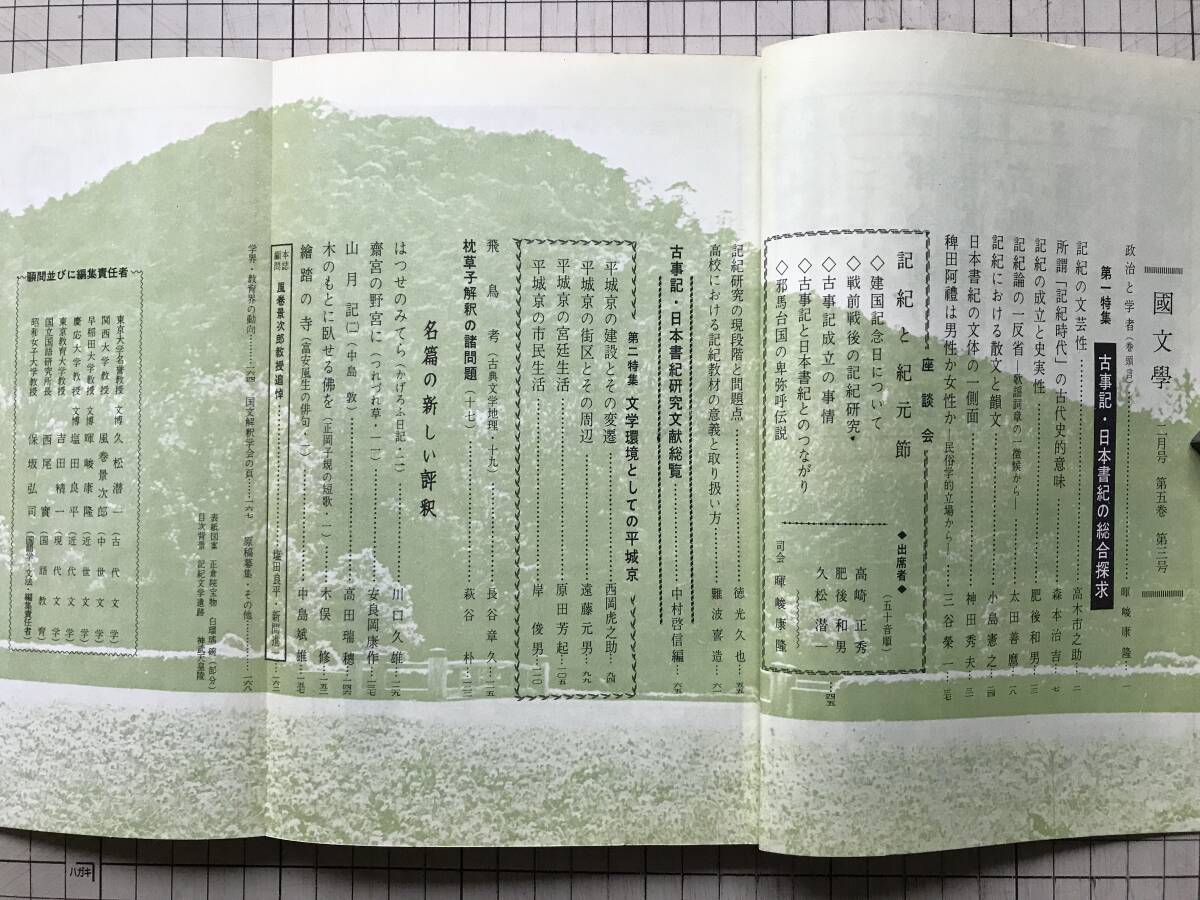 國文學 二月号 第五巻 第三号
政治と学者(巻頭言)………暉峻康隆…一
第一特集 古事記・日本書紀の総合探求
記紀の文芸性………高木市之助…二
所謂「記紀時代」の古代史的意味………森本治吉…七
記紀の成立と史実性………肥後和男…三
記紀論の一反省―歌謡詞章の一徴候から―………太田善麿…一八
記紀における散文と韻文………小島憲之…二四
日本書紀の文体の一側面………神田秀夫…三一
稗田阿禮は男性か女性か―民俗学的立場から―………三谷栄一…三七
座談会
記紀と紀元節
◇建国記念日について
◇戦前戦後の記紀研究
◇古事記成立の事情
◇古事記と日本書紀とのつながり
◇邪馬台国の卑弥呼伝説
◆出席者◆
(五十音順)
高崎正秀
肥後和男
久松潜一
司会 暉峻康隆
…四五
記紀研究の現段階と問題点………徳光久也…五五
高校における記紀教材の意義と取り扱い方………難波喜造…六一
古事記・日本書紀研究文献総覧………中村啓信編…六五
第二特集 文学環境としての平城京
平城京の建設とその変遷………西岡虎之助…九四
平城京の街区とその周辺………遠藤元男…九九
平城京の宮廷生活………原田芳起…一〇五
平城京の市民生活………岸俊男…一一〇
飛鳥考(古典文学地理・十九)………長谷章久…一一五
枕草子解釈の諸問題(十七)………萩谷朴…一二二
名篇の新しい評釈
はつせのみてら(かげろふ日記・二)………川口久雄…一二九
齋宮の野宮に(つれづれ草・一一)………安良岡康作…一三七
山月記(二)(中島敦)………高田瑞穂…一四四
木のもとに臥せる佛を(正岡子規の短歌・一)………木俣修…一五二
繪踏の寺(富安風生の俳句・二)………中島斌雄…一五七
本誌顧問 風巻景次郎教授追悼………塩田良平・新間進一…一六二
学界・教育界の動向………一六四 国文解釈学会の頁……一六七 原稿募集 その他………一六八
表紙図案 正倉院宝物 白瑠璃碗(部分)
目次背景 記紀文学遺跡 神武天皇陵
顧問並びに編集責任者
東京大学名誉教授 文博 久松潜一(古代文学)
関西大学教授 文博 風巻景次郎(中世文学)
早稲田大学教授 文博 暉峻康隆(近世文学)
慶応大学教授 文博 塩田良平(近代文学)
東京教育大学教授 吉田精一(現代文学)
国立国語研究所長 西尾實(国語教育)
昭和女子大学教授 保坂弘司(国語学・文法・編集責任者)
ハガキ